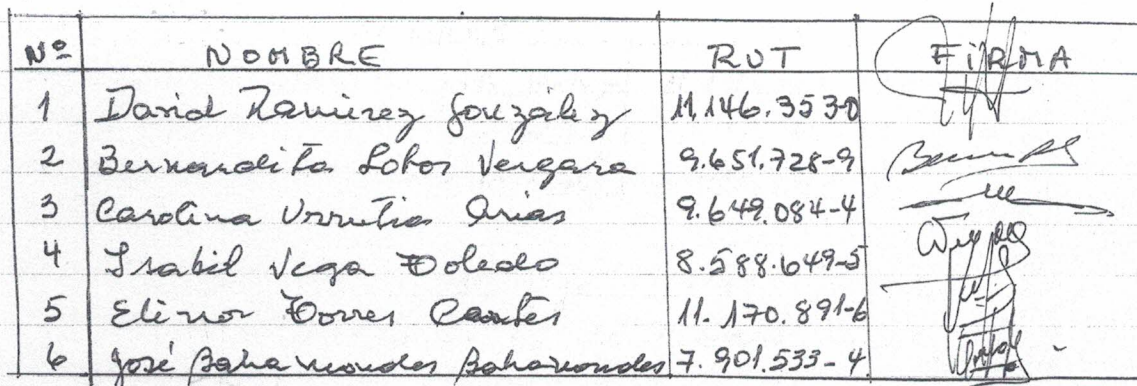 Nº NOMBRE RUT FIRMA
1 David Ramirez González 11.146.353-0
2 Bernardita Lobos Vergara 9.651.728-9
3 Carolina Urrutia Arias 9.649.084-4
4 Isabel Vega Toledo 8.588.649-5
5 Elinor Torres Cortés 11.170.891-6
6 José Bahamondes Bahamondes 7.901.533-4